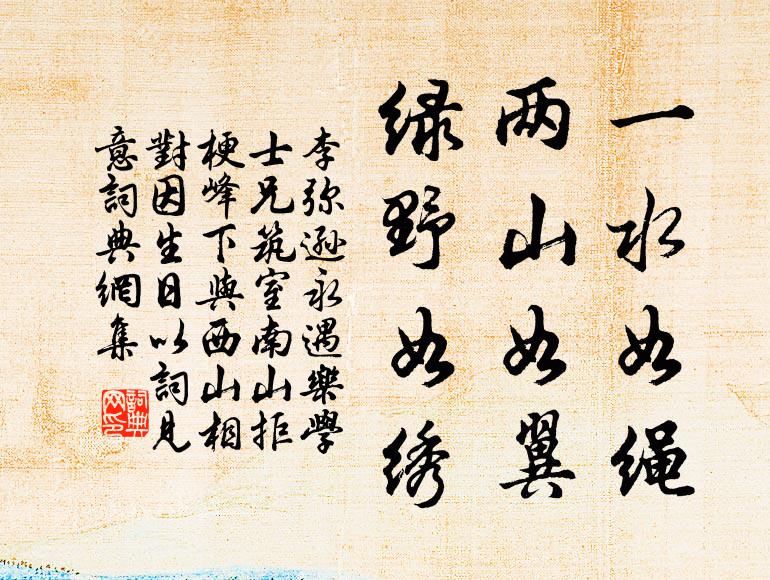 一水如绳
两山如翼
绿野如绣
李弥逊永遇樂學
士兄筑室南山拒
梗峰下與西山相
對因生日以詞見
意詞典網集
詞典
网印